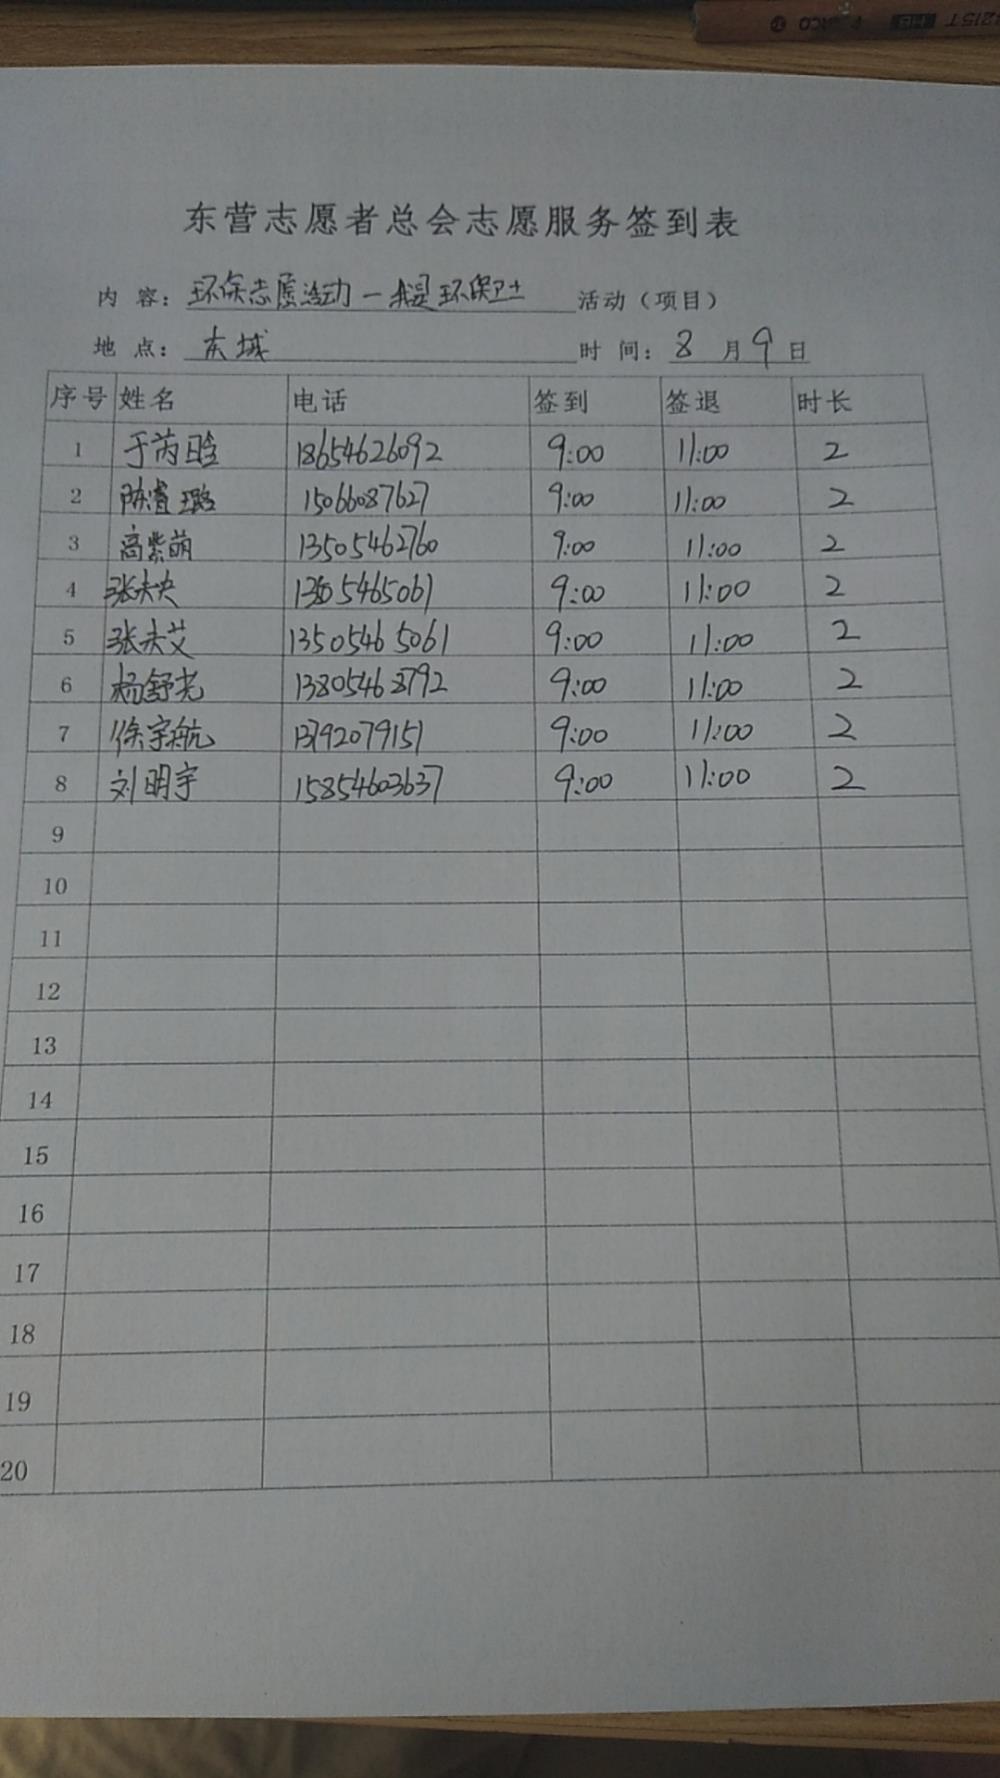 东营志愿者总会志愿服务签到表
内 容: 环保志愿活动一我是环保卫士 活动（项目）
地 点: 东城 时 间: 8 月 9 日
序号 姓名 电话 签到 签退 时长
1 于芮晗 18654626092 9:00 11:00 2
2 陈睿璐 15066087627 9:00 11:00 2
3 高紫萌 13505462760 9:00 11:00 2
4 张未央 13505465061 9:00 11:00 2
5 张未艾 13505465061 9:00 11:00 2
6 杨舒尧 13805468792 9:00 11:00 2
7 徐宇航 13792079151 9:00 11:00 2
8 刘明宇 15854603637 9:00 11:00 2
9
10
11
12
13
14
15
16
17
18
19
20